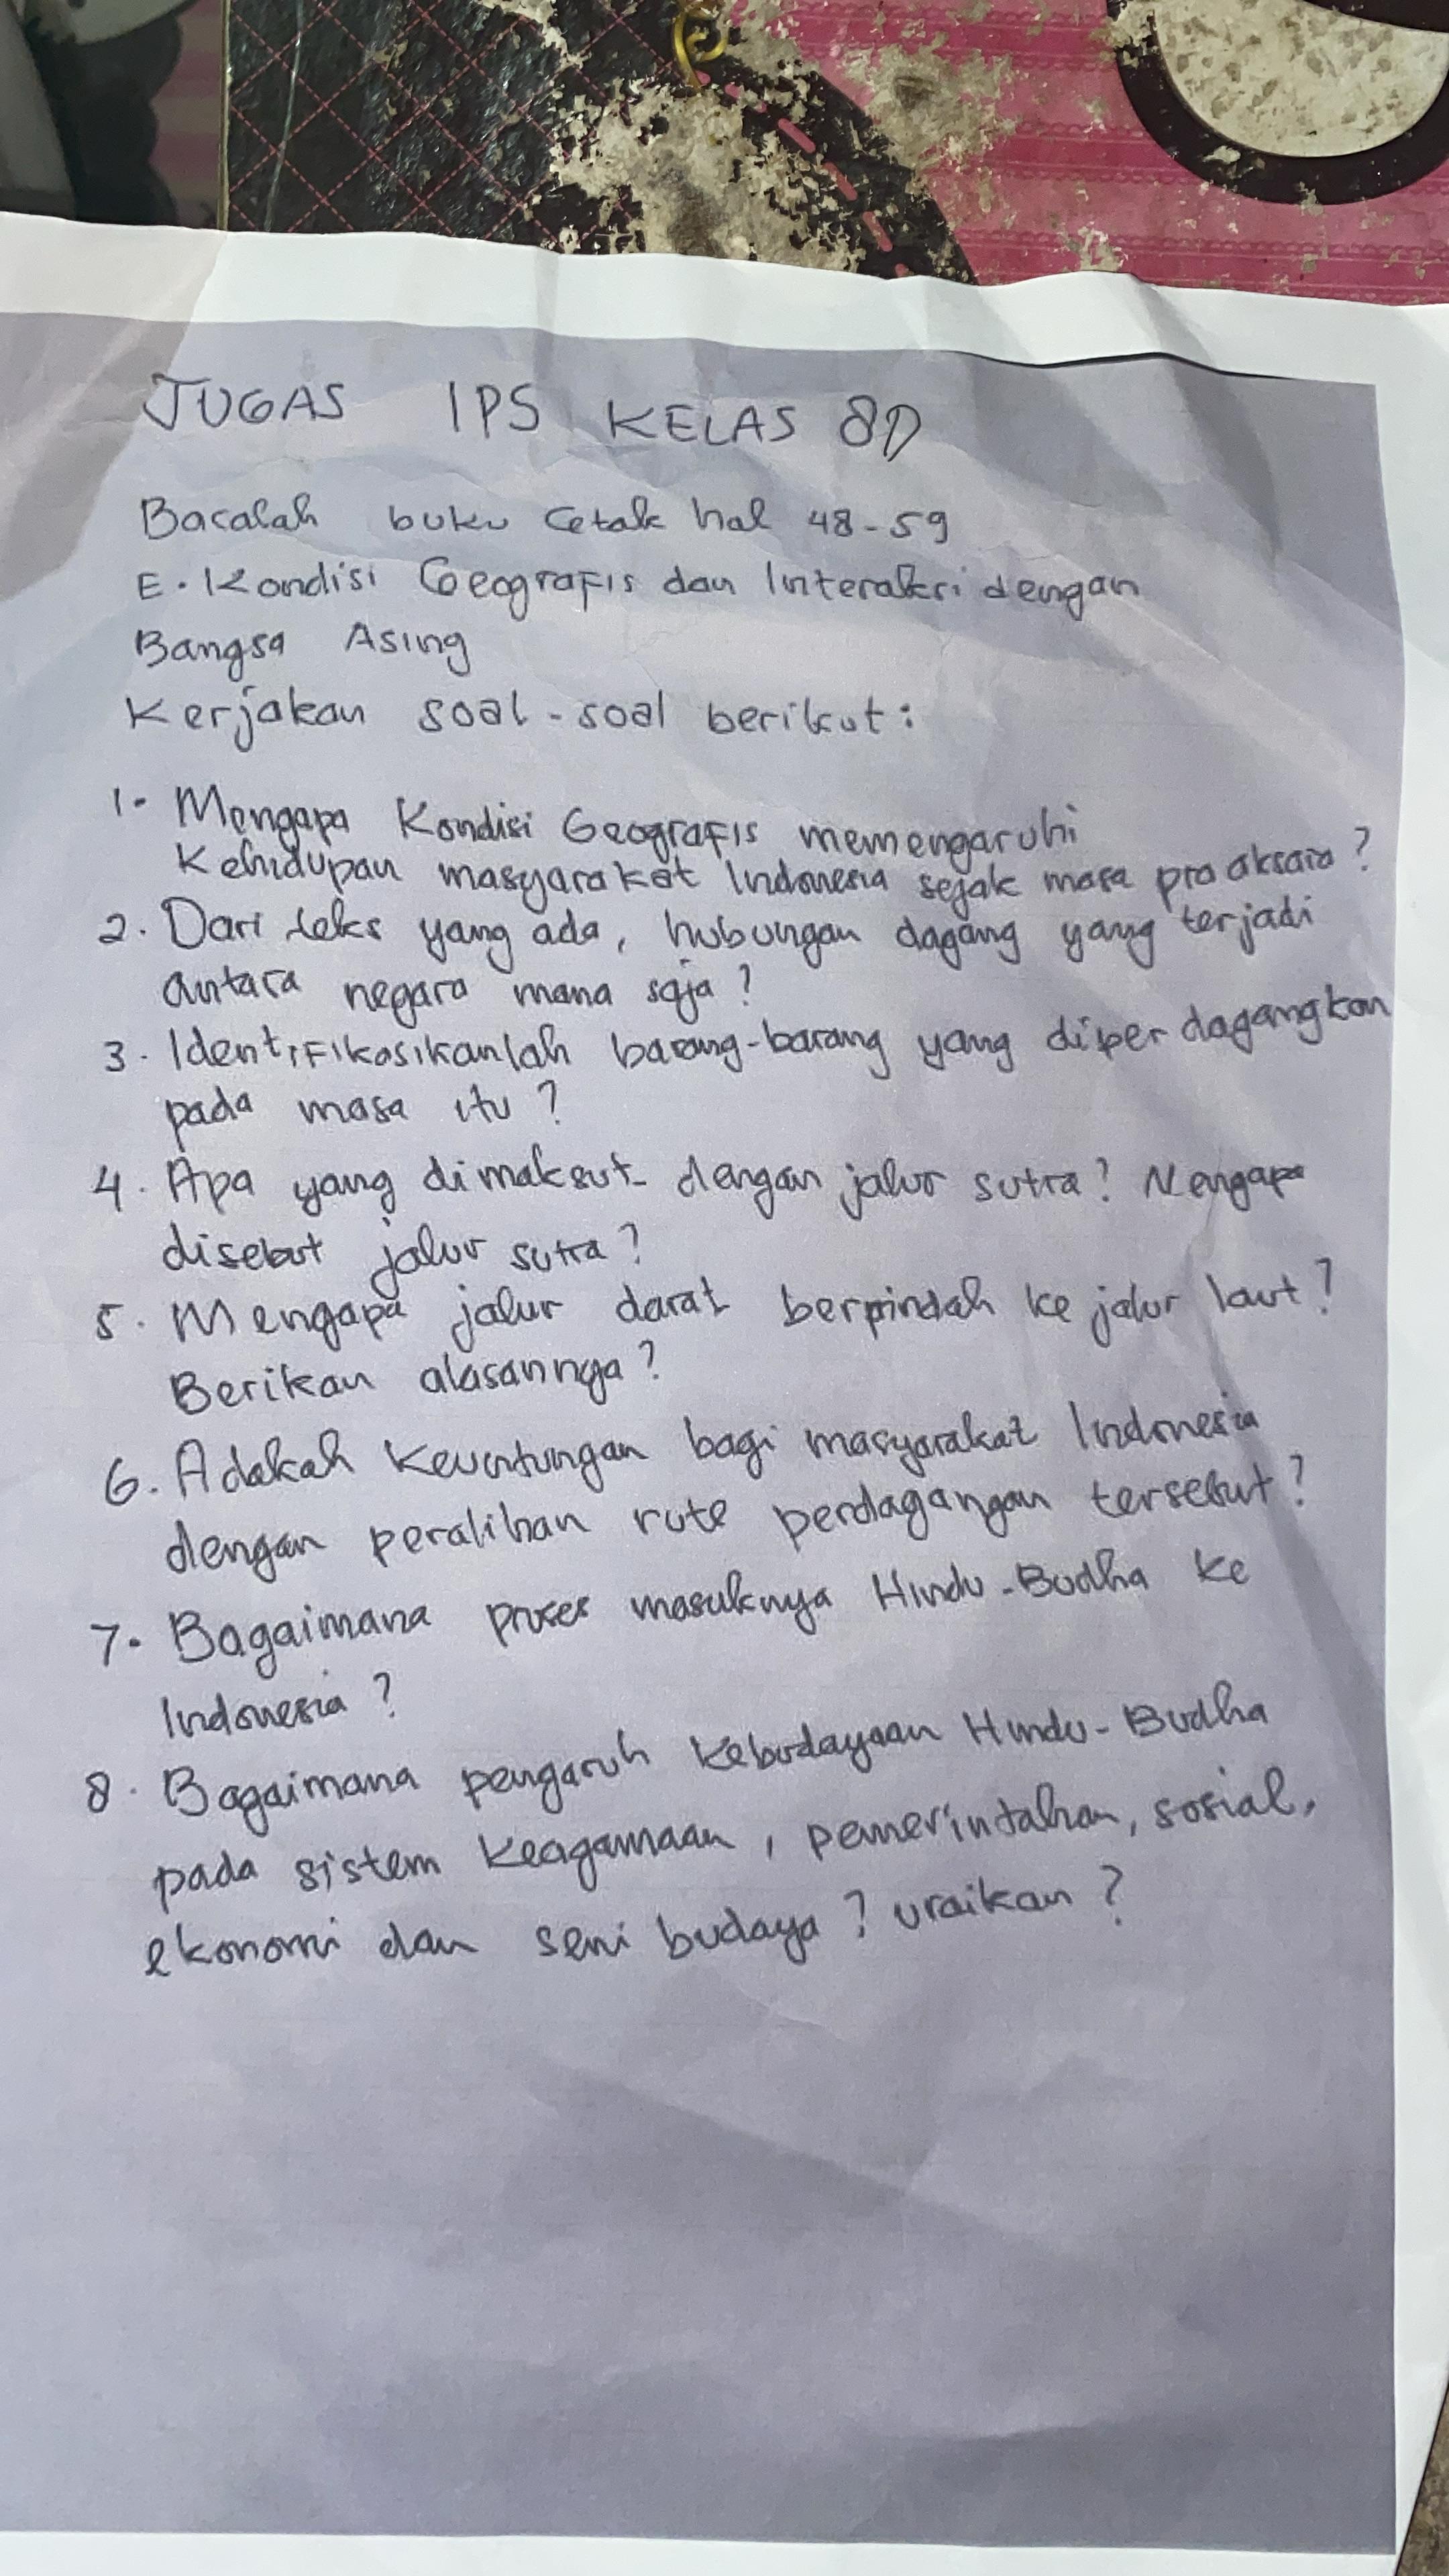 TUGAS IPS KELAS 8D
Bacalah buku cetak hal 48-59
E. Kondisi Geografis dan Interaksi dengan
Bangsa Asing
Kerjakan soal-soal berikut:
1. Mengapa Kondisi Geografis memengaruhi
Kehidupan masyarakat Indonesia sejak masa pra aksara?
2. Dari teks yang ada, hubungan dagang yang terjadi
antara negara mana saja?
3. Identifikasikanlah barang-barang yang diperdagangkan
pada masa itu?
4. Apa yang dimaksut dengan jalur sutra? Mengapa
disebut jalur sutra?
5. Mengapa jalur darat berpindah ke jalur laut?
Berikan alasannya?
6. Adakah keuntungan bagi masyarakat Indonesia
dengan peralihan rute perdagangan tersebut?
7. Bagaimana proses masuknya Hindu-Budha ke
Indonesia?
8. Bagaimana pengaruh kebudayaan Hindu-Budha
pada sistem keagamaan, pemerintahan, sosial,
ekonomi dan seni budaya? uraikan?